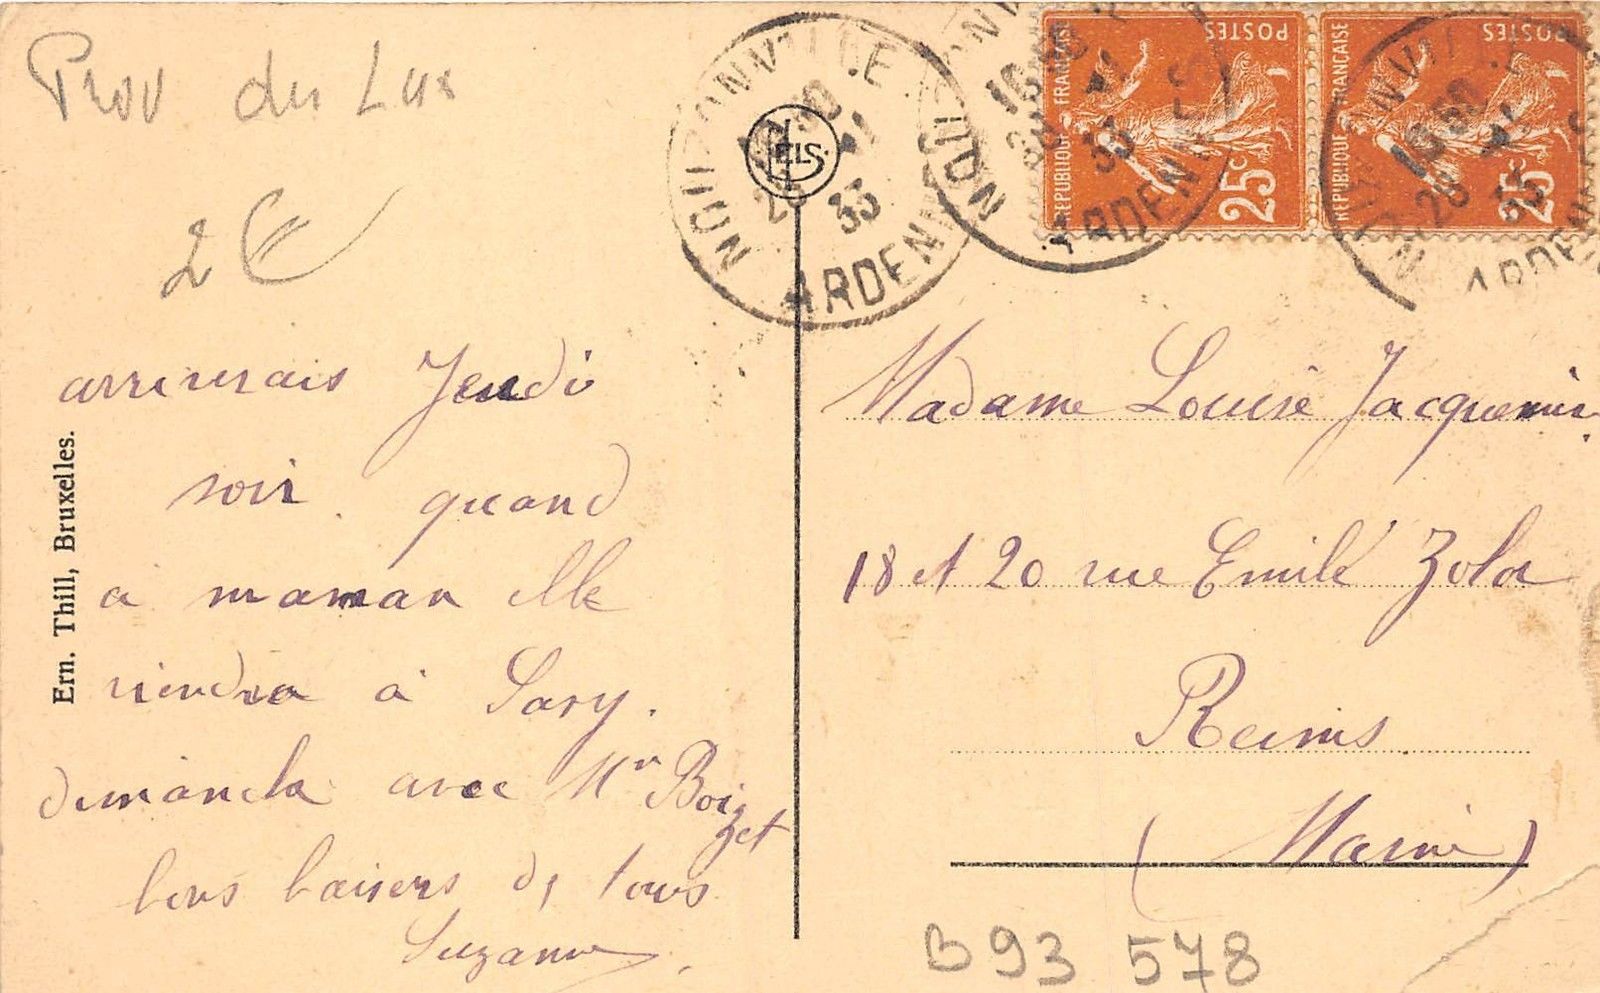 Prov du Lux
2€
arriverais Jeudi
soir. quand
à maman elle
viendra à Sary.
dimanche avec Mr Boizet
bons baisers de tous
Suzanne.
Ern. Thill, Bruxelles.
NOUZONVILLE
ARDENNES
ELS
NOUZONVILLE
16 30
33
ARDENNES
POSTES
REPUBLIQUE FRANÇAISE
25c
POSTES
REPUBLIQUE FRANÇAISE
25c
Madame Louise Jacquemin
18 et 20 rue Emile Zola
Reims.
(Marne)
B93 578